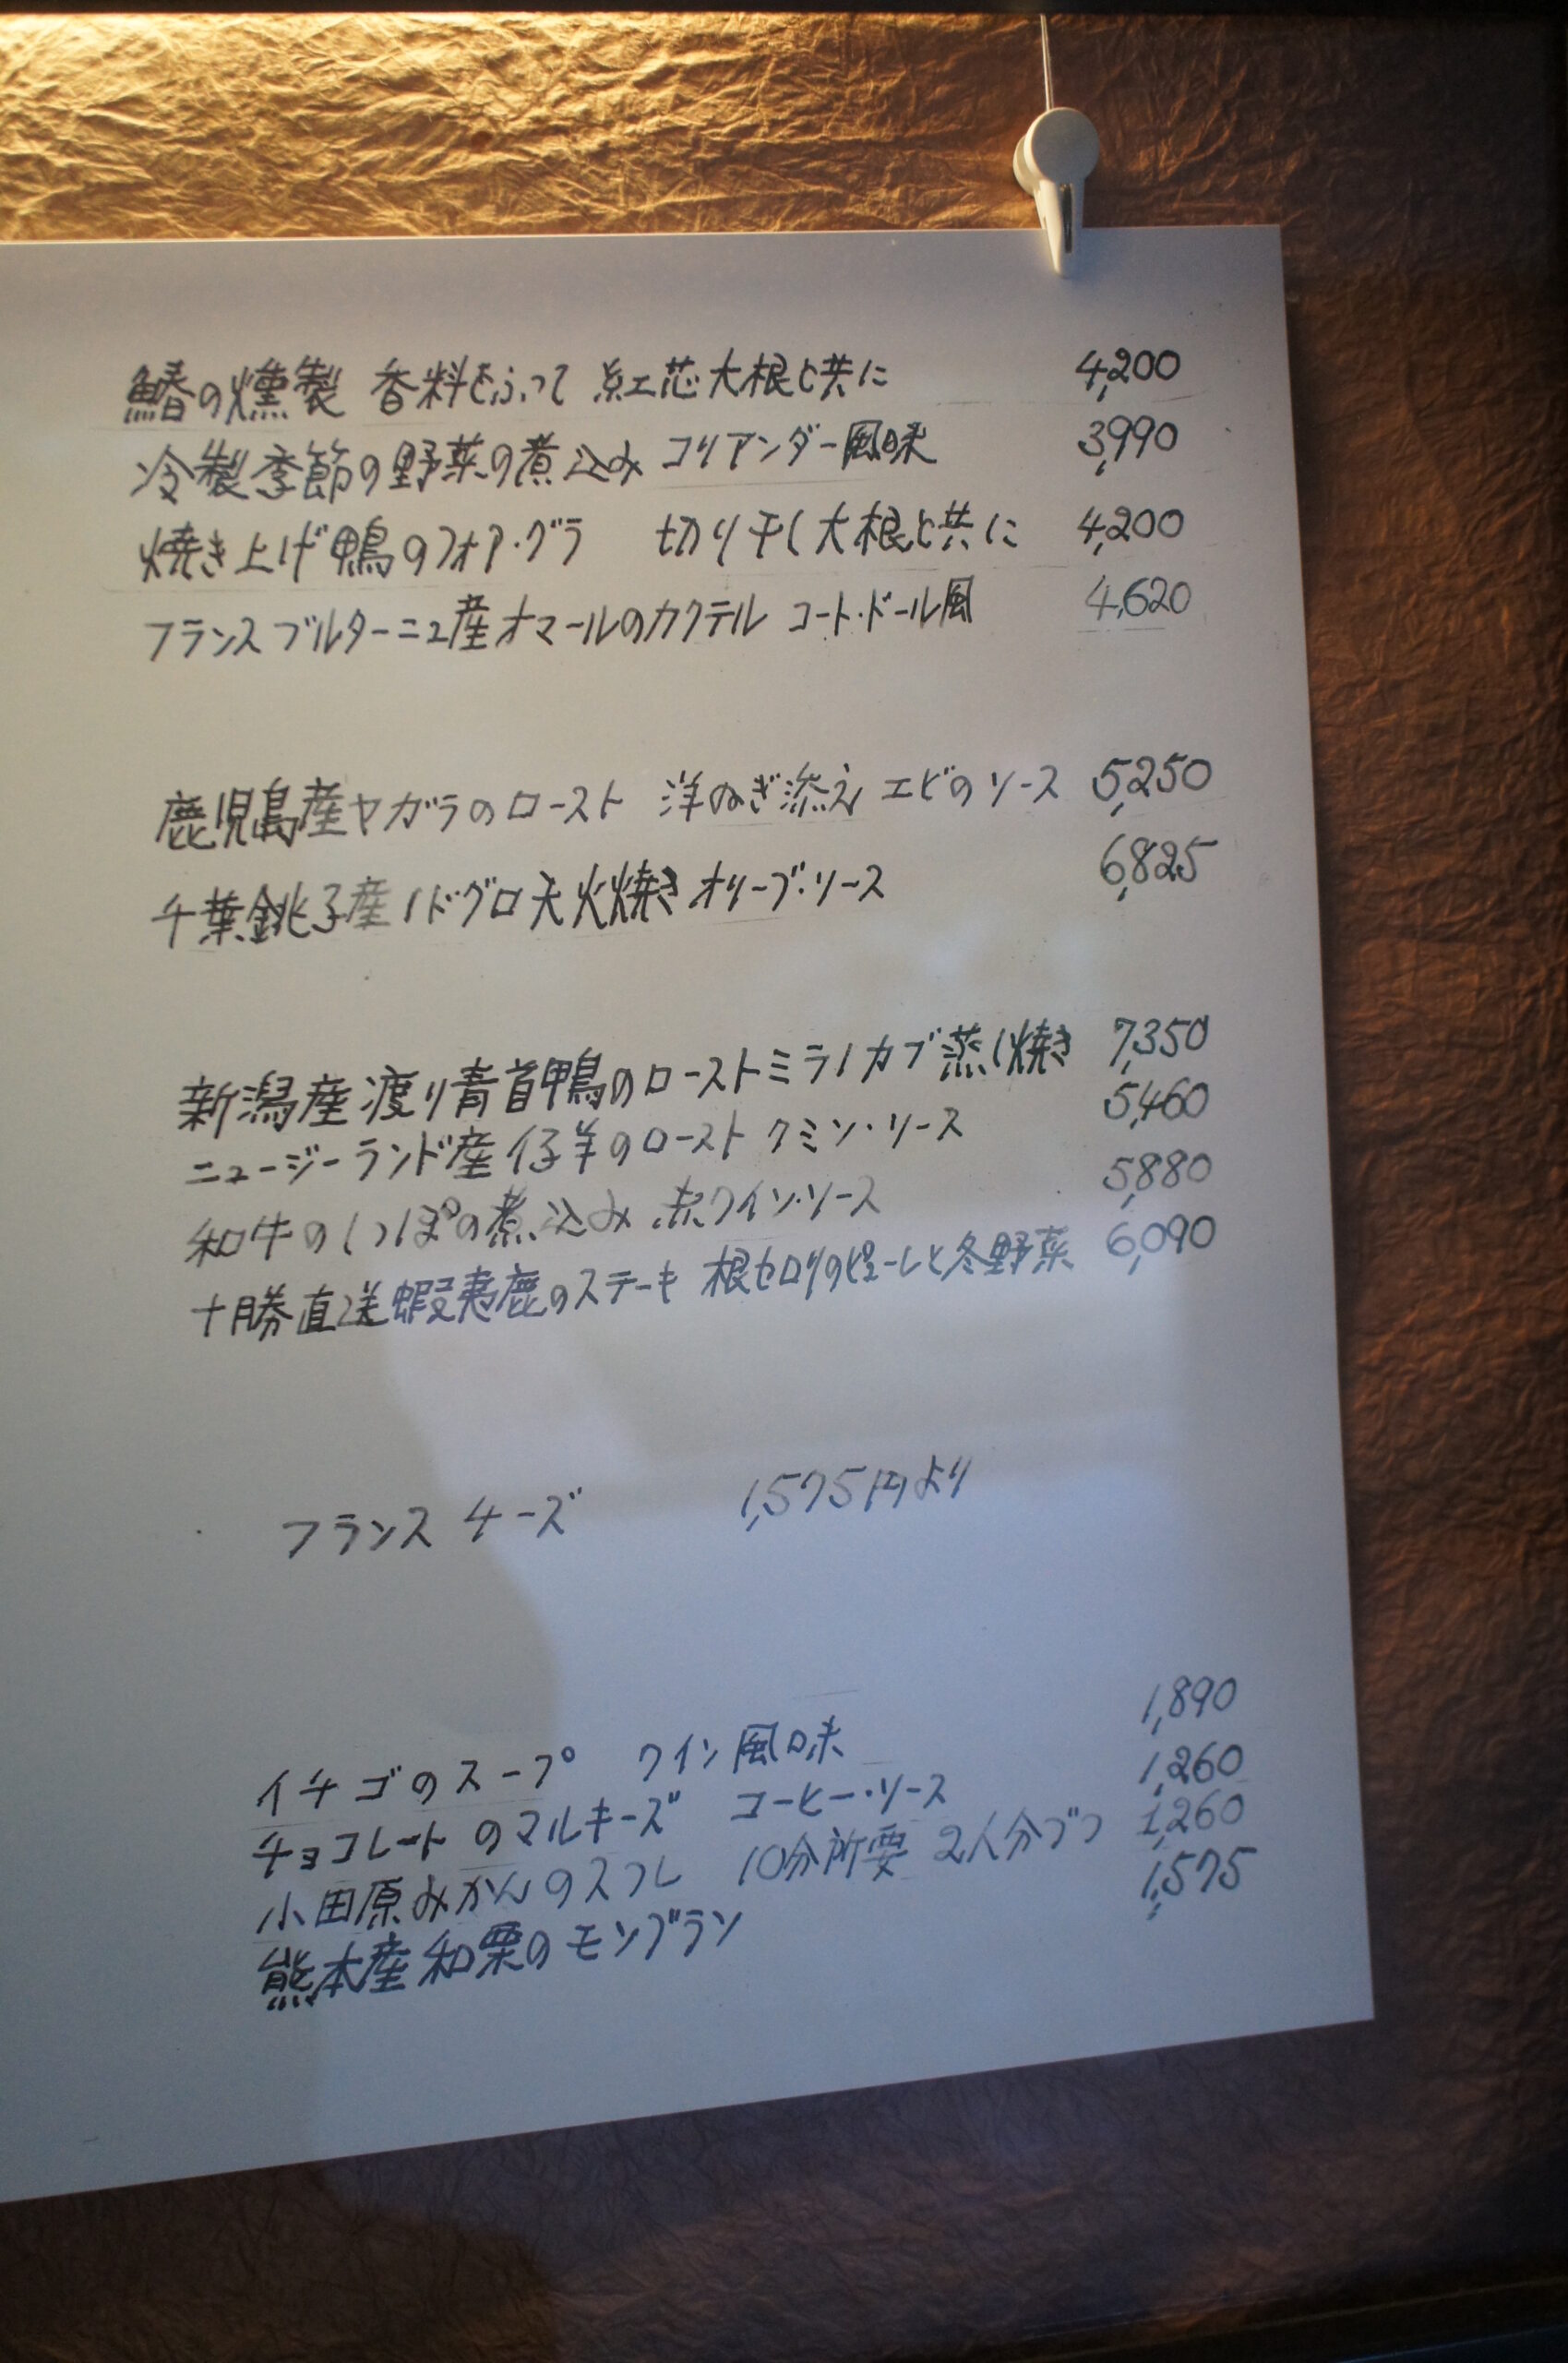 鰆の燻製 香料をふって 紅芯大根と共に 4,200
冷製季節の野菜の煮込み コリアンダー風味 3,990
焼き上げ鴨のフォア・グラ 切り干し大根と共に 4,200
フランスブルターニュ産オマールのカクテル コート・ドール風 4,620
鹿児島産ヤガラのロースト 洋ねぎ添え エビのソース 5,250
千葉銚子産ノドグロ天火焼き オリーブ・ソース 6,825
新潟産渡り青首鴨のロースト ミラノカブ蒸し焼き 7,350
ニュージーランド産仔羊のロースト クミン・ソース 5,460
和牛のしっぽの煮込み 赤ワイン・ソース 5,880
十勝直送蝦夷鹿のステーキ 根セロリのピューレと冬野菜 6,090
フランス チーズ 1,575円より
イチゴのスープ ワイン風味 1,890
チョコレートのマルキーズ コーヒー・ソース 1,260
小田原みかんのスフレ 10分所要 2人分づつ 1,260
熊本産和栗のモンブラン 1,575